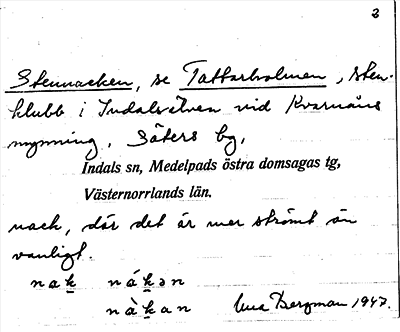 2
Stennacken, se Tattarholmen, sten-
klubb i Indalsälven vid Kvarnåns
mynning, Säters by,
Indals sn, Medelpads östra domsagas tg,
Västernorrlands län.
nack, där det är mer strömt än
vanligt.
nak nákən
nàkan Una Bergman 1947.